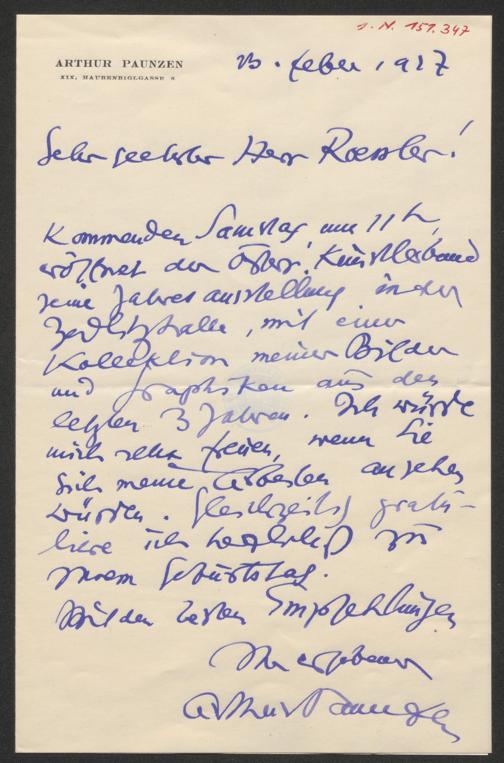 I. N. 151.347
ARTHUR PAUNZEN
XIX, HAUBENBIGLGASSE 8
23. feber 1927
Sehr geehrter Herr Roessler!
Kommenden Samstag um 11 h,
eröffnet der Österr. Künstlerbund
seine Jahresausstellung in der
Zedlitzhalle, mit einer
Kollektion meiner Bilder
und Graphiken aus den
letzten 3 Jahren. Ich würde
mich sehr freuen, wenn Sie
sich meine Arbeiten ansehen
würden. Gleichzeitig gratu-
liere ich herzlichst zu
Ihrem Geburtstag.
Mit den besten Empfehlungen
Ihr ergebener
Arthur Paunzen